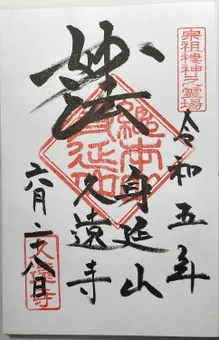 宗祖棲神之霊場
令和五年
妙法
身延山
久遠寺
六月二十八日
総本山
身延山
久遠寺